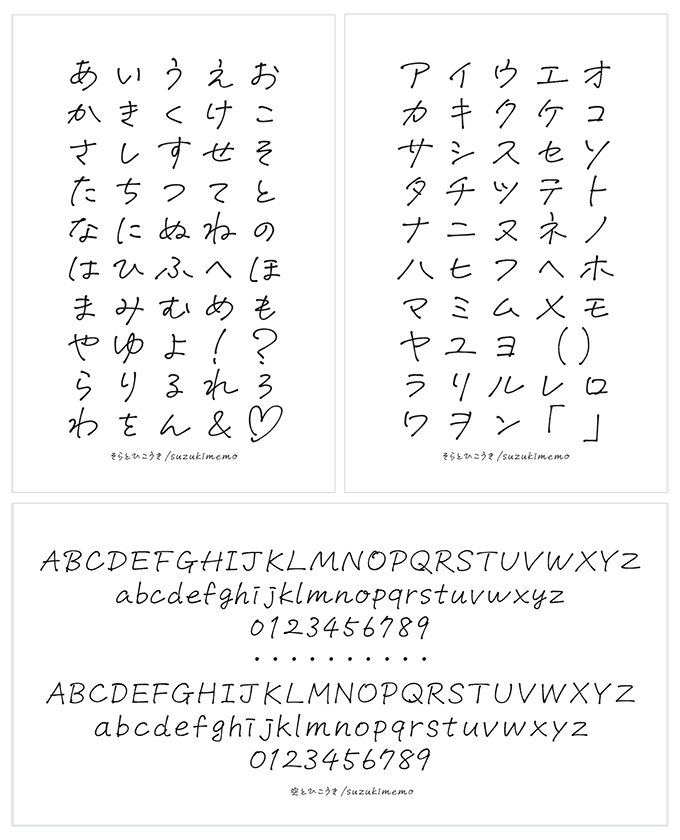 あいうえお
かきくけこ
さしすせそ
たちつてと
なにぬねの
はひふへほ
まみむめも
やゆよ！？
らりるれろ
わをん&♡
そらとひこうき/suzukimemo
アイウエオ
カキクケコ
サシスセソ
タチツテト
ナニヌネノ
ハヒフヘホ
マミムメモ
ヤユヨ()
ラリルレロ
ワヲン「」
そらとひこうき/suzukimemo
ABCDEFGHIJKLMNOPQRSTUVWXYZ
abcdefghijklmnopqrstuvwxyz
0123456789
・・・・・・・・・・
ABCDEFGHIJKLMNOPQRSTUVWXYZ
abcdefghijklmnopqrstuvwxyz
0123456789
空とひこうき/suzukimemo